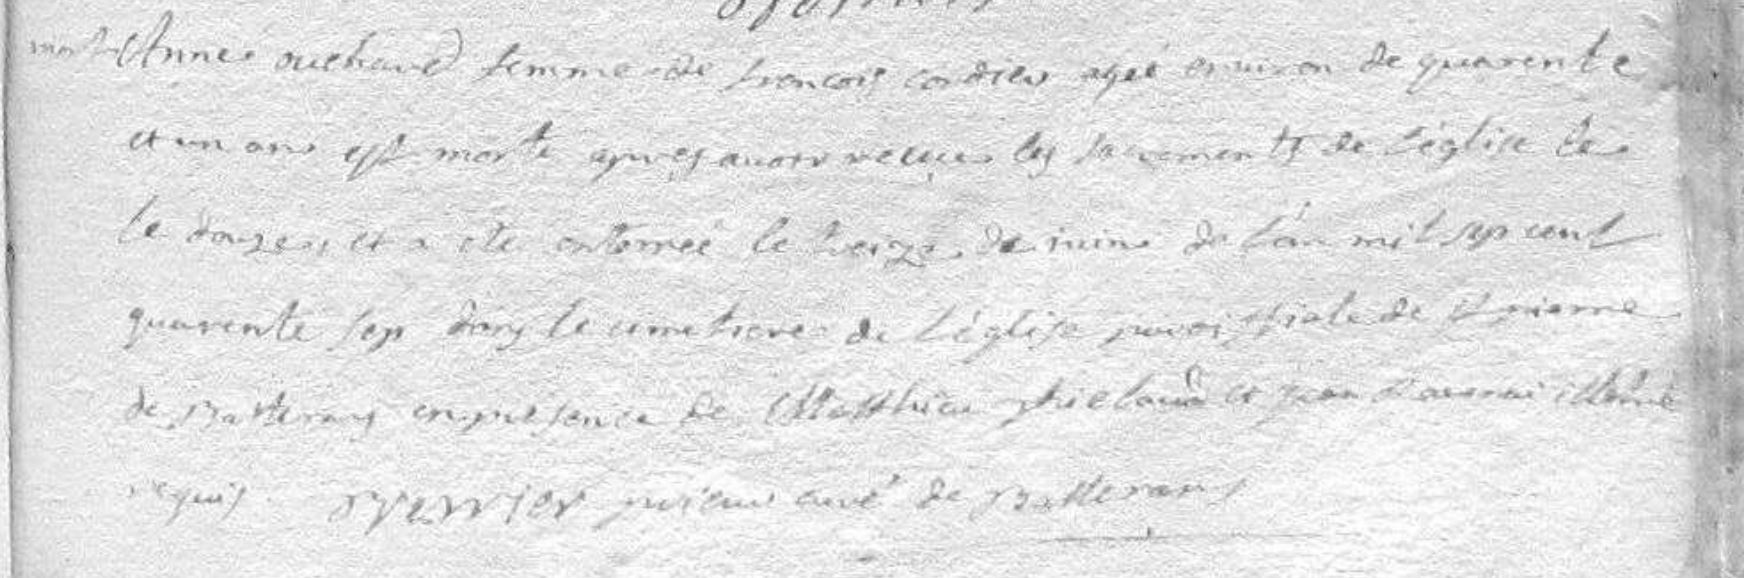 mort Anne ouchard femme de francois cordier ageé environ de quarente
et un ans est morte apres avoir recues les sacrements de l'église le
le douze, et a ete enterreé le treize de iuin de l'an mil sep cent
quarente sep dans le cimetiere de l'église paroissiale de St pierre
de Batterans en presence de Matthieu et jean
requis. prieur curé de Batterans